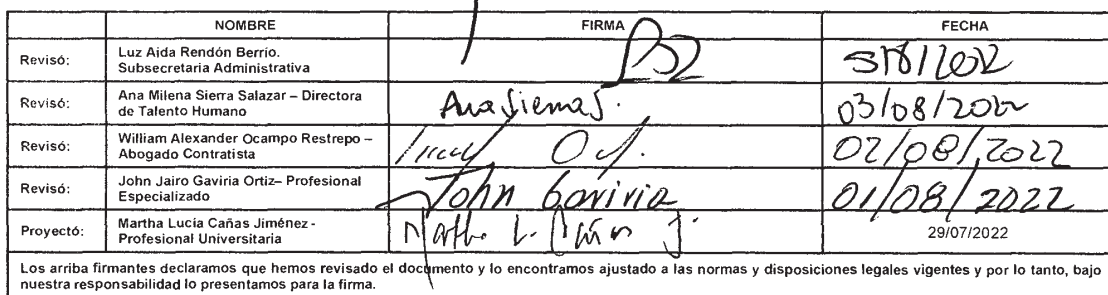 NOMBRE FIRMA FECHA
Revisó: Luz Aida Rendón Berrío.
Subsecretaria Administrativa
Revisó: Ana Milena Sierra Salazar – Directora
de Talento Humano Ana Sierra S. 03/08/2022
Revisó: William Alexander Ocampo Restrepo –
Abogado Contratista 02/08/2022
Revisó: John Jairo Gaviria Ortiz– Profesional
Especializado John Gaviria 01/08/2022
Proyectó: Martha Lucía Cañas Jiménez -
Profesional Universitaria Martha L. Cañas J. 29/07/2022
Los arriba firmantes declaramos que hemos revisado el documento y lo encontramos ajustado a las normas y disposiciones legales vigentes y por lo tanto, bajo
nuestra responsabilidad lo presentamos para la firma.